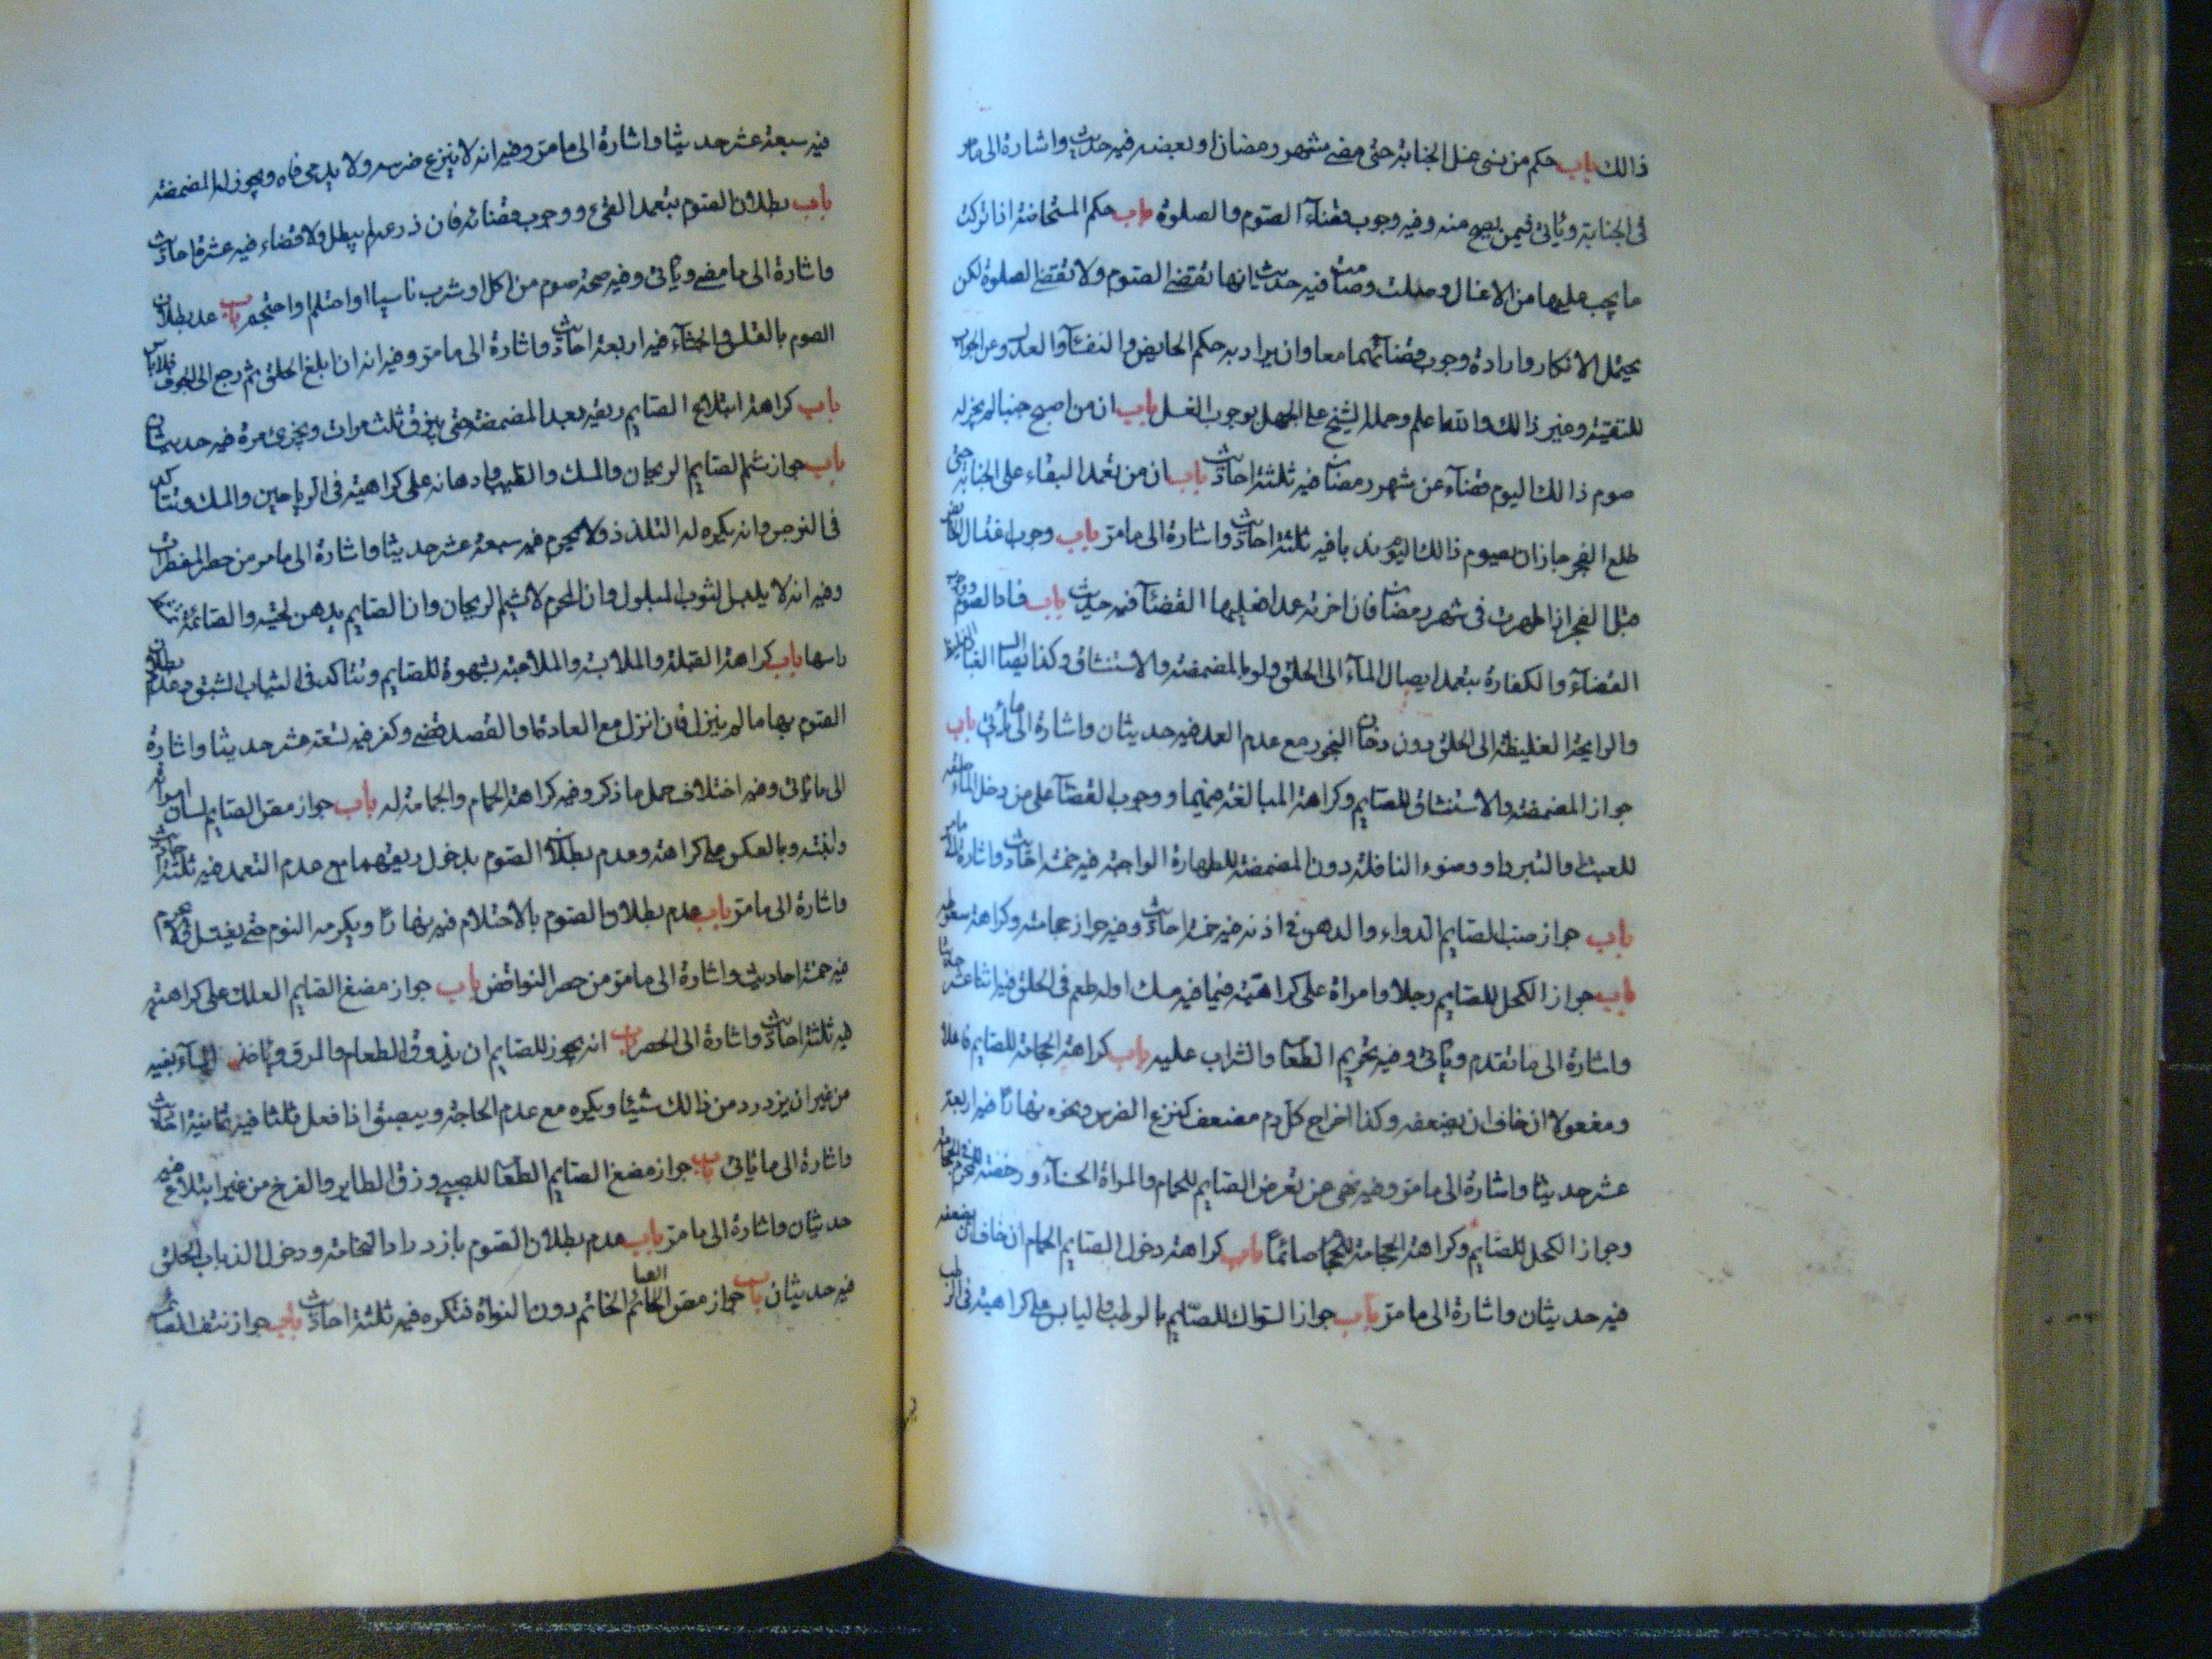 ذالك باب حكم من نسى غسل الجنابة حتى مضى شهر رمضان او بعضه فيه حديث واشارة الى ما مر
فى الجنابة وياتى فيمن يصح منه وفيه وجوب قضآء الصوم والصلوة باب حكم المستحاضة اذا تركت
ما يجب عليها من الاغسال وصلت وصامت فيه حديث انها تقضى الصوم ولا تقضى الصلوة لكن
يحتمل الانكار وارادة وجوب قضآئهما معا وان يراد به حكم الحايض والنفسآ والعدول عن الجواب
للتقية وغير ذالك والله اعلم وحمله الشيخ على الجهل بوجوب الغسل باب ان من اصبح جنبا لم يجز له
صوم ذالك اليوم قضآء عن شهر رمضان فيه ثلثة احاديث باب ان من تعمد البقاء على الجنابة حتى
طلع الفجر جاز ان يصوم ذالك اليوم ندبا فيه ثلثة احاديث واشارة الى ما مر باب وجوب اغتسال الحايض
قبل الفجر اذا طهرت فى شهر رمضان فان اخرته عمدا فعليها القضآ فيه حديث باب فساد الصوم ووجوب
القضآء والكفارة بتعمد ايصال المآء الى الحلق ولو بالمضمضة والاستنشاق وكذا ايصال الغبار الغليظ
والرايحة الغليظة الى الحلق دون دخان البخور مع عدم العمد فيه حديثان واشارة الى ما ياتى باب
جواز المضمضة والاستنشاق للصايم وكراهة المبالغة فيهما ووجوب القضآ على من دخل المآء حلقه
للعبث والتبرد او وضوء النافلة دون المضمضة للطهارة الواجبة فيه خمسة احاديث واشارة الى ما مر
باب جواز صب الصايم الدواء والدهن فى اذنه فيه خمسة احاديث وفيه جواز حجامته وكراهة سعوطه
باب جواز الكحل للصايم رجلا وامراة على كراهية فيما فيه مسك او له طعم فى الحلق فيه اثنا عشر حديثا
واشارة الى ما تقدم وياتى وفيه تحريم الطعام والشراب عليه باب كراهة الحجامة للصايم فاعلا
ومفعولا ان خاف ان يضعفه وكذا اخراج كل دم مضعف كنزع الضرس ونحوه نهارا فيه اربعة
عشر حديثا واشارة الى ما مر وفيه نهى عن تعرض الصايم للحمام والمراة الحسنآء ورخصة للمحرم فى الحجامة
وجواز الكحل للصايم وكراهة الحجامة للحجام صائما باب كراهة دخول الصايم الحمام ان خاف ان يضعفه
فيه حديثان واشارة الى ما مر باب جواز السواك للصايم بالرطب واليابس على كراهية فى الرطب
فيه سبعة عشر حديثا واشارة الى ما مر وفيه انه لا ينزع ضرسه ولا يدمى فاه ويجوز له المضمضة
باب بطلان الصوم بتعمد القىء ووجوب قضائه فان ذرعه لم يبطل ولا قضاء فيه عشرة احاديث
واشارة الى ما مضى وياتى وفيه صحة صوم من اكل او شرب ناسيا او احتلم او احتجم باب عدم بطلان
الصوم بالقلس والجشآء فيه اربعة احاديث واشارة الى ما مر وفيه انه ان بلغ الحلق ثم رجع الى الجوف فلا باس
باب كراهة ابتلاع الصايم ريقه بعد المضمضة حتى يبزق ثلث مرات ويجزى مرة فيه حديثان
باب جواز شم الصايم الريحان والمسك والطيب وادهانه على كراهية فى الرياحين والمسك وتتاكد
فى النرجس وانه يكره له التلذذ ولا يحرم فيه سبعة عشر حديثا واشارة الى ما مر من حصر المفطرات
وفيه انه لا يلبس الثوب المبلول وان المحرم لا يشم الريحان وان الصايم يدهن لحيته والصائمة
راسها باب كراهة القبلة والملامسة والملاعبة بشهوة للصايم وتتاكد فى الشاب الشبق وعدم بطلان
الصوم بها ما لم ينزل فان انزل مع العادة او القصد قضى وكفر فيه تسعة عشر حديثا واشارة
الى ما ياتى وفيه اختلاف حمل ما ذكر وفيه كراهة الحمام والحجامة له باب جواز مص الصايم لسان امراته
وابنته وبالعكس على كراهة وعدم بطلان الصوم بدخول ريقهما مع عدم التعمد فيه ثلثة احاديث
واشارة الى ما مر باب عدم بطلان الصوم بالاحتلام فيه نهارا ويكره النوم حتى يغتسل
فيه خمسة احاديث واشارة الى ما مر من حصر النواقض باب جواز مضغ الصايم العلك على كراهة
فيه ثلثة احاديث واشارة الى الحصر باب انه يجوز للصايم ان يذوق الطعام والمرق وياخذ المآء بفيه
من غير ان يزدرد من ذالك شيئا ويكره مع عدم الحاجة ويبصق اذا فعل ثلثا فيه ثمانية احاديث
واشارة الى ما ياتى باب جواز مضغ الصايم الطعام للصبى وزق الطاير والفرخ من غير ابتلاع فيه
حديثان واشارة الى ما مر باب عدم بطلان الصوم بازدراد النخامة ودخول الذباب الحلق
فيه حديثان باب جواز مص الصائم الخاتم دون النواة فتكره فيه ثلثة احاديث باب جواز نتف الصائم